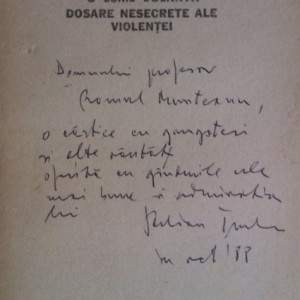 DOSARE NESECRETE ALE
VIOLENȚEI
Domnului profesor
Romul Munteanu,
o cărticică cu gangsteri
și alte răutăți
oferită cu gândurile cele
mai bune și admirația
lui
în oct '88